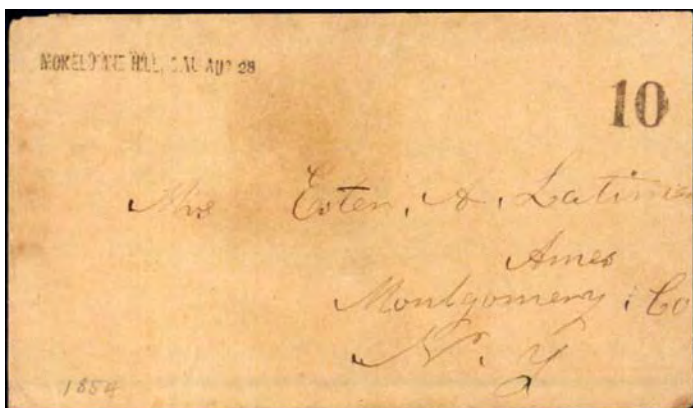 HILL, CAL AUG 28
10
Mrs Ester, A, Latimer
Ames
Montgomery, Co
N. Y
1854